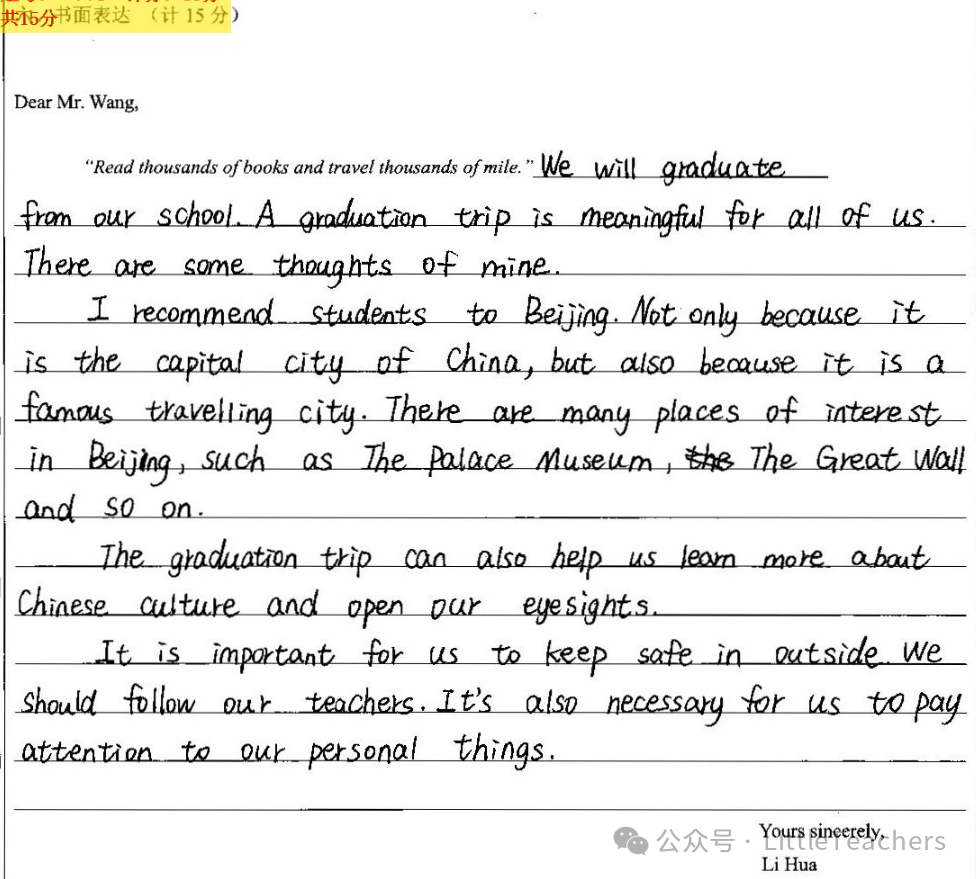 共15分 书面表达 (计 15 分)
Dear Mr. Wang,
"Read thousands of books and travel thousands of mile." We will graduate
from our school. A graduation trip is meaningful for all of us.
There are some thoughts of mine.
I recommend students to Beijing. Not only because it
is the capital city of China, but also because it is a
famous travelling city. There are many places of interest
in Beijing, such as The Palace Museum, the The Great Wall
and so on.
The graduation trip can also help us learn more about
Chinese culture and open our eyesights.
It is important for us to keep safe in outside. We
should follow our teachers. It's also necessary for us to pay
attention to our personal things.
Yours sincerely,
公众号 · LittleTeachers
Li Hua